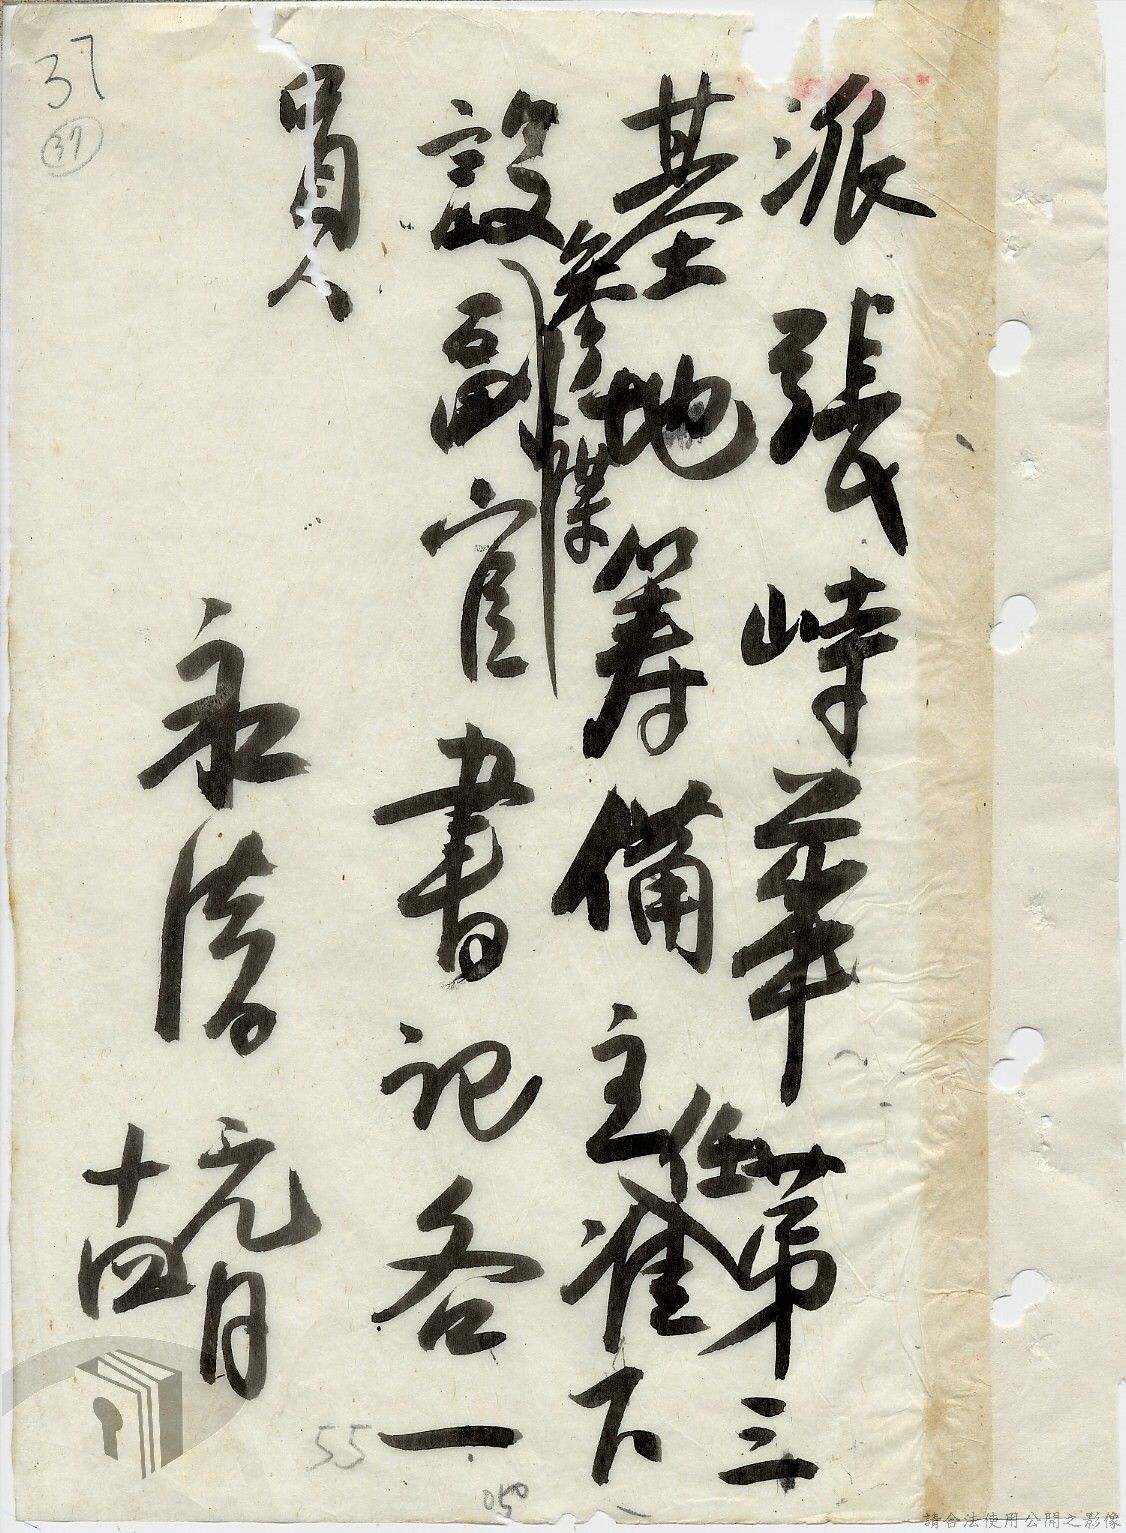 派張峙華第三
基地籌備主任准下
設參謀副官書記各一
員人
永清 元月
十四
37
37
55
050
請合法使用公開之影像